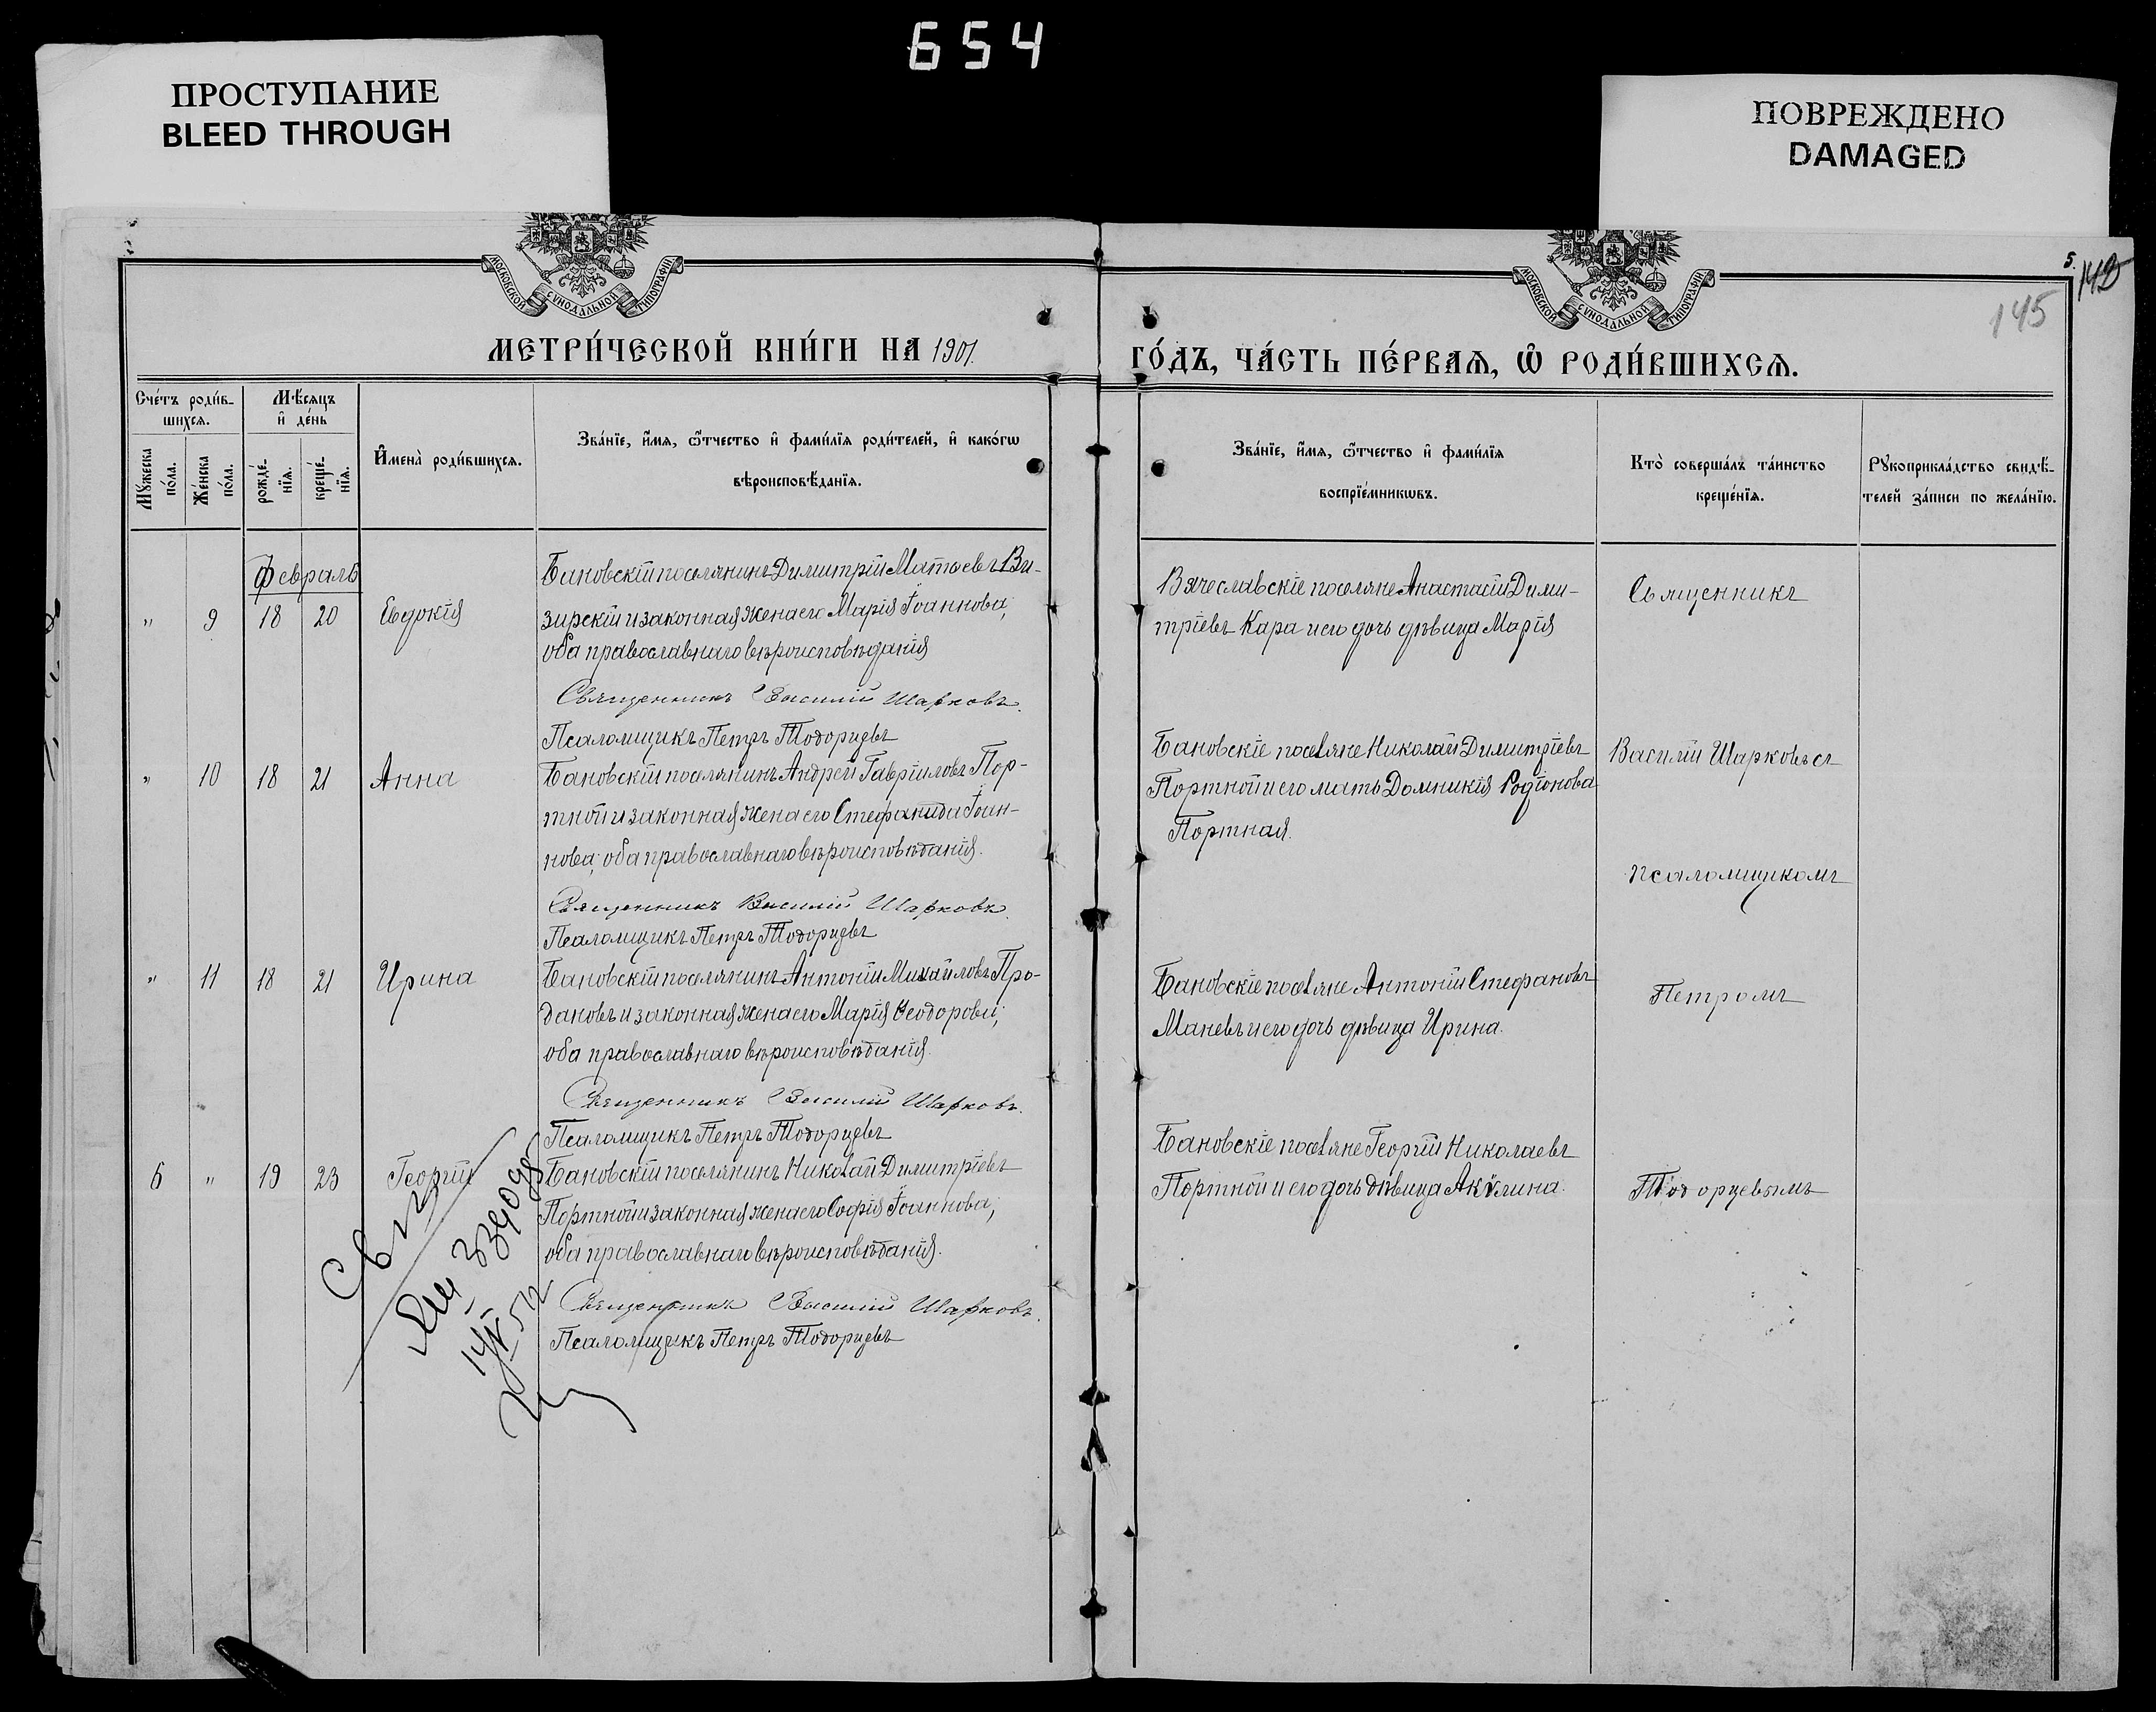 654
ПРОСТУПАНИЕ
BLEED THROUGH
ПОВРЕЖДЕНО
DAMAGED
МОСКОВСКОЙ СУНОДАЛЬНОЙ ТИПОГРАФІИ
МОСКОВСКОЙ СУНОДАЛЬНОЙ ТИПОГРАФІИ
5.
142
145
МЕТРИ́ЧЕСКОЙ КНИ́ГИ НА 1901.
ГО́ДЪ, ЧА́СТЬ ПЕ́РВАѦ, Ѡ҆ РОДИ́ВШИХСѦ.
Сче́тъ роди́в-
шихсѧ.
Мꙋ́жеска по́ла.
Же́нска по́ла.
Мѣ́сѧцъ
и҆ де́нь
рожде́-
нїѧ.
креще́-
нїѧ.
И҆мена̀ роди́вшихсѧ.
Зва́нїе, и҆́мѧ, ѻ҆́тчество и҆ фами́лїѧ роди́телей, и҆ како́гѡ
вѣроисповѣ́данїѧ.
Зва́нїе, и҆́мѧ, ѻ҆́тчество и҆ фами́лїѧ
воспрїе́мникѡвъ.
Кто̀ соверша́лъ та́инство
креще́нїѧ.
Рꙋкоприкла́дство свидѣ́-
телей за́писи по жела́нїю.
Февраль
" 9 18 20 Евдокія
Бановскій поселянинъ Димитрій Матѳеевъ Ви-
зирскій и законная жена его Марія Іоаннова,
оба православнаго вѣроисповѣданія
Священникъ Василій Шарковъ.
Псаломщикъ Петръ Тодорцевъ
Вячеславскіе поселяне Анастасій Дими-
тріевъ Кара и его дочь дѣвица Марія
Священникъ
" 10 18 21 Анна
Бановскій поселянинъ Андрей Гавріиловъ Пор-
тной и законная жена его Стефанида Іоан-
нова; оба православнаго вѣроисповѣданія.
Священникъ Василій Шарковъ.
Псаломщикъ Петръ Тодорцевъ
Бановскіе поселяне Николай Димитріевъ
Портной и его мать Домникія Родіонова
Портная.
Василій Шарковъ съ
псаломщикомъ
" 11 18 21 Ирина
Бановскій поселянинъ Антоній Михаиловъ Про-
дановъ и законная жена его Марія Ѳеодорова;
оба православнаго вѣроисповѣданія.
Священникъ Василій Шарковъ.
Псаломщикъ Петръ Тодорцевъ
Бановскіе поселяне Антоній Стефановъ
Маневъ и его дочь дѣвица Ирина.
Петромъ
6 " 19 23 Георгій
Бановскій поселянинъ Николай Димитріевъ
Портной и законная жена его Софія Іоаннова;
оба православнаго вѣроисповѣданія.
Священникъ Василій Шарковъ.
Псаломщикъ Петръ Тодорцевъ
Бановскіе поселяне Георгій Николаевъ
Портной и его дочь дѣвица Акулина.
Тодорцевымъ